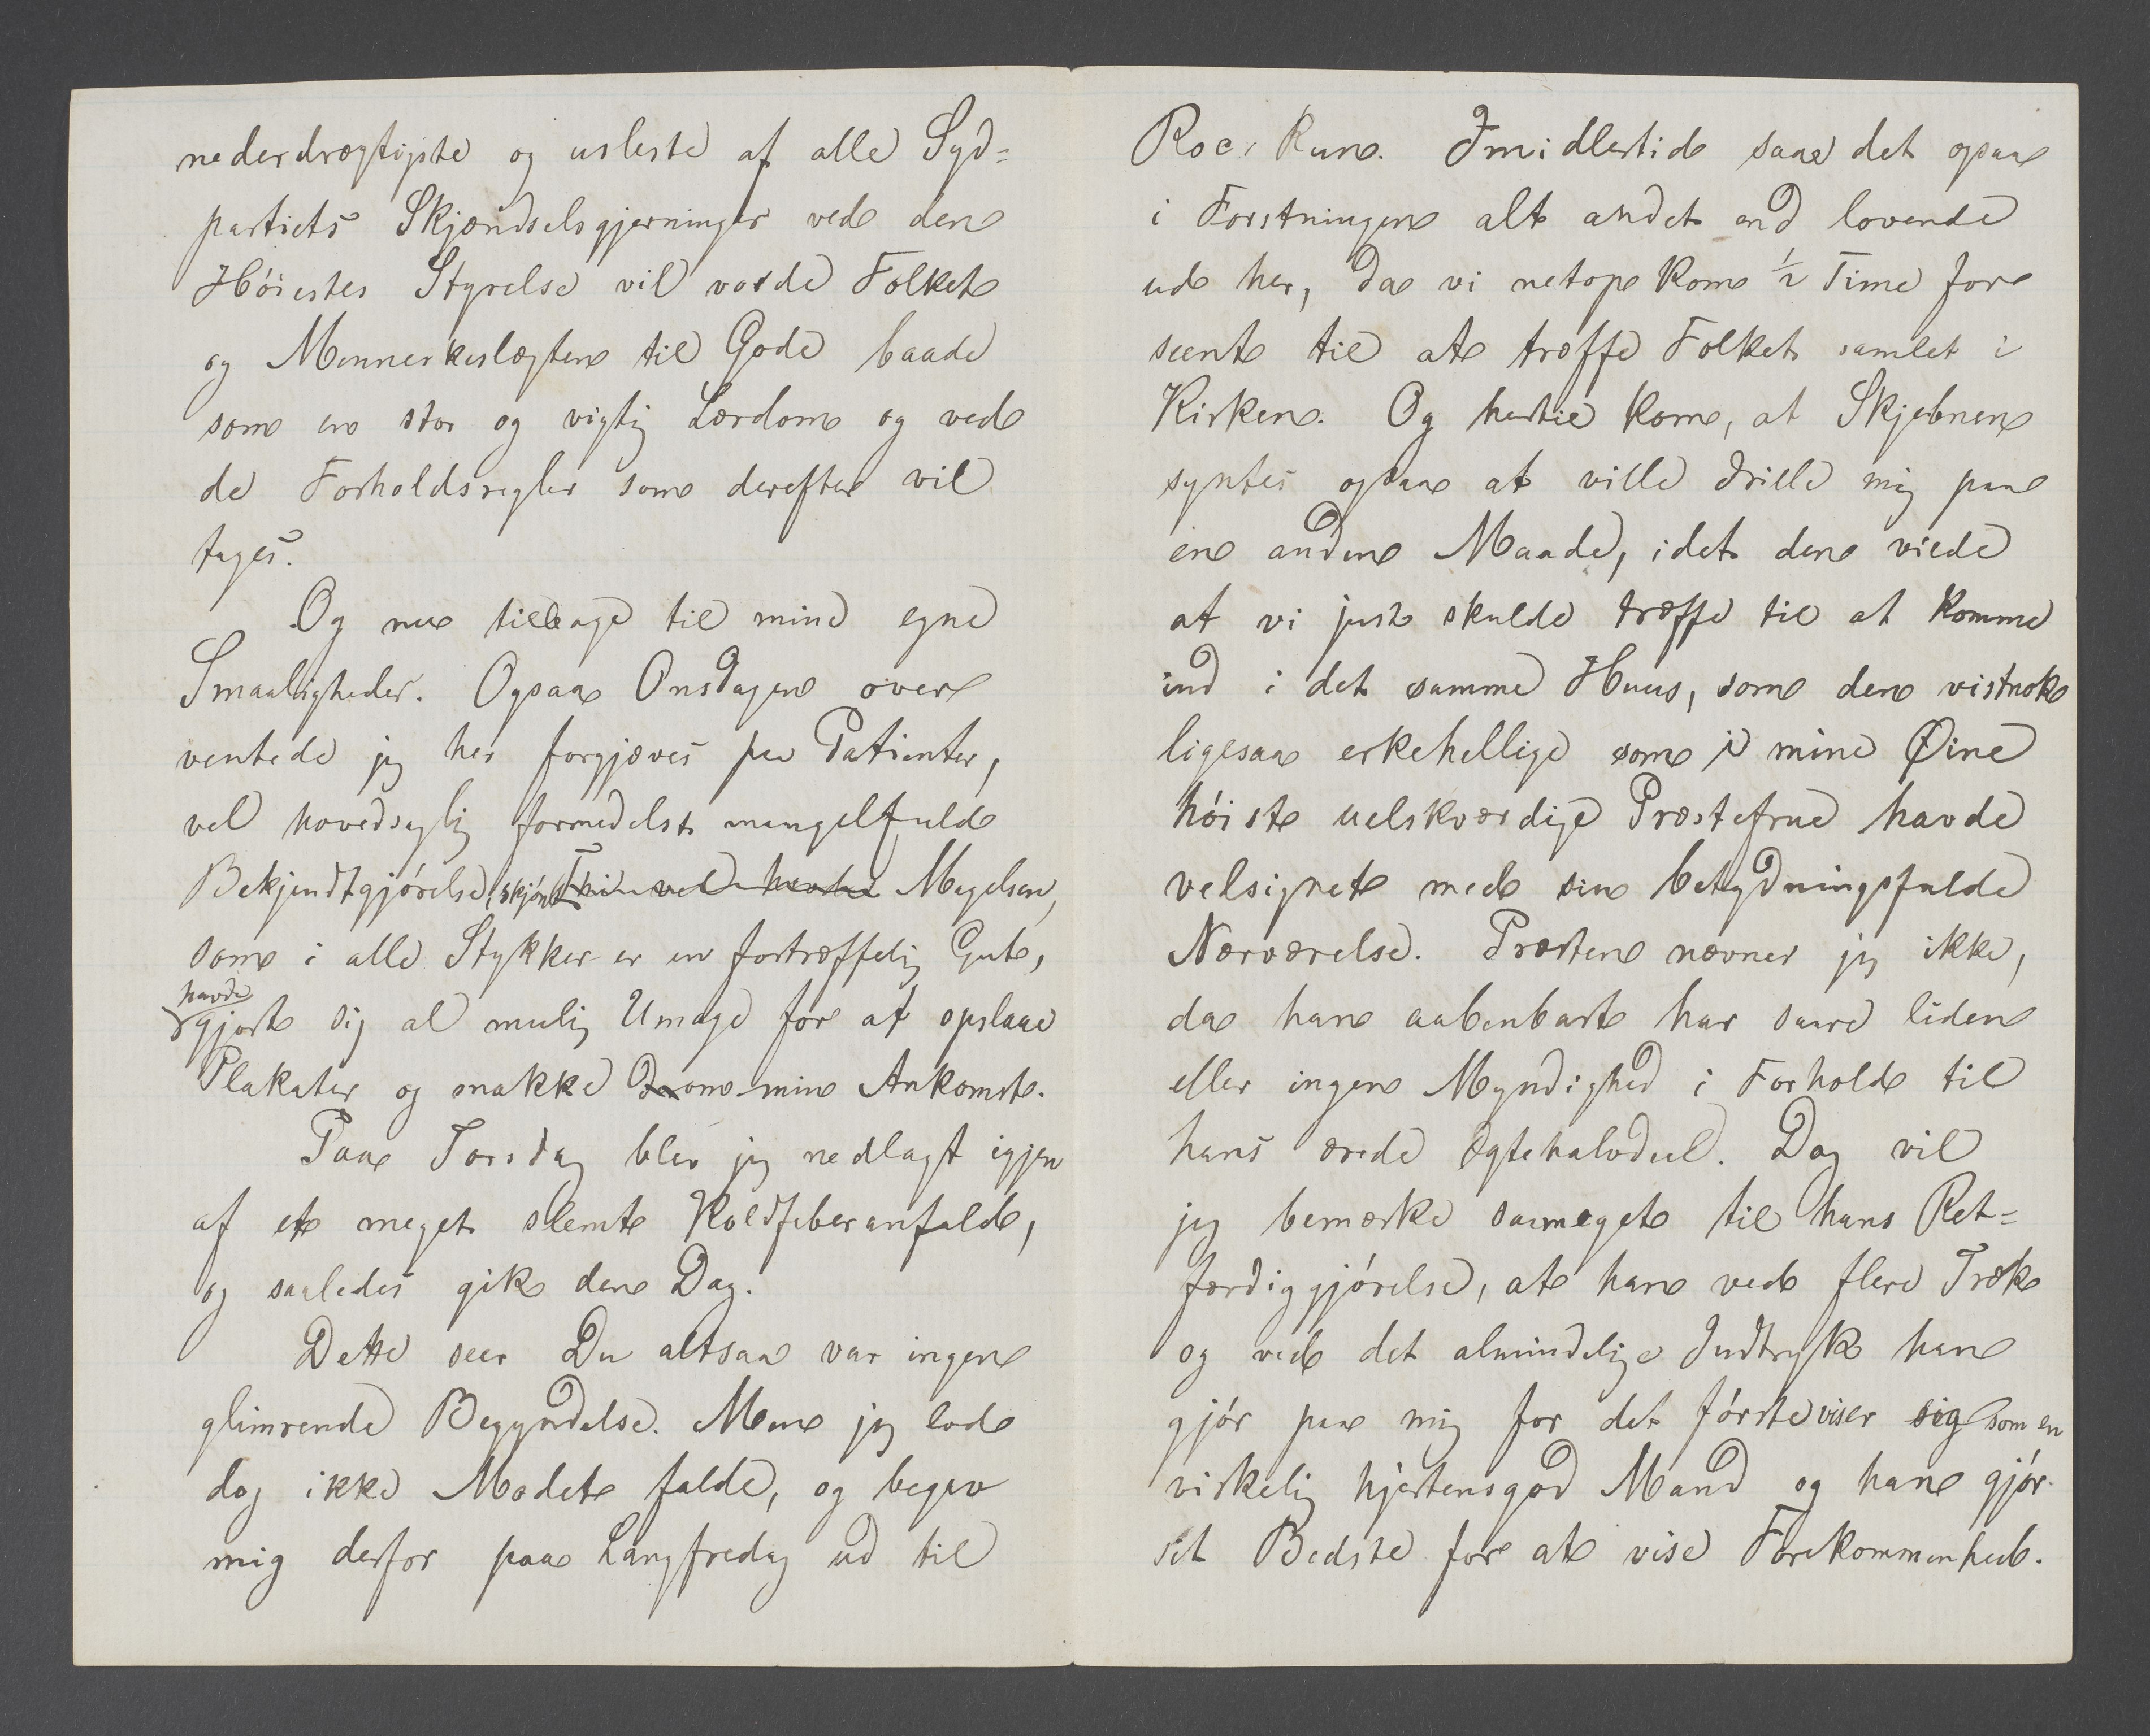 nederdrægtigste og usleste af alle Syd=
partiets Skjændselsgjerninger ved den
Höiestes Styrelse vil vorde Folket
og Menneskeslægten til Gode baade
som en stor og vigtig Lærdom og ved
de Forholdsregler som derefter vil
tages.
Og nu tilbage til mine egne
Smaaligheder. Ogsaa Onsdagen over
ventede jeg her forgjæves paa Patienter,
vel hovedsaglig formedelst mangelfuld
Bekjendtgjörelse, skjönt Megelsen,
som i alle Stykker er en fortræffelig Gut,
havde
gjort sig al mulig Umage for at opslaae
Plakater og snakke om min Ankomst.
Paa Torsdag blev jeg nedlagt igjen
af et meget slemt Koldfeberanfald,
og saaledes gik den Dag.
Dette seer Du altsaa var ingen
glimrende Begyndelse. Men jeg lod
dog ikke Modet falde, og begav
mig derfor paa Langfredag ud til
Roc. Run. Imidlertid saae det ogsaa
i Forstningen alt andet end lovende
ud her, da vi netop kom ½ Time for
seent til at træffe Folket samlet i
Kirken. Og hertil kom, at Skjebnen
syntes ogsaa at ville drille mig paa
en anden Maade, idet den vilde
at vi just skulde træffe til at komme
ind i det samme Huus, som den vistnok
ligesaa erkehellige som i mine Øine
höist uelskværdige Præstefrue havde
velsignet med sin betydningsfulde
Nærværelse. Præsten nævner jeg ikke,
da han aabenbart har saare liden
eller ingen Myndighed i Forhold til
hans ærede Ægtehalvdeel. Dog vil
jeg bemærke saameget til hans Ret=
færdiggjörelse, at han ved flere Træk
og ved det almindelige Indtryk han
gjör paa mig for det förste viser sig som en
virkelig hjertensgod Mand og han gjör
sit Bedste for at vise Forekommenhed.